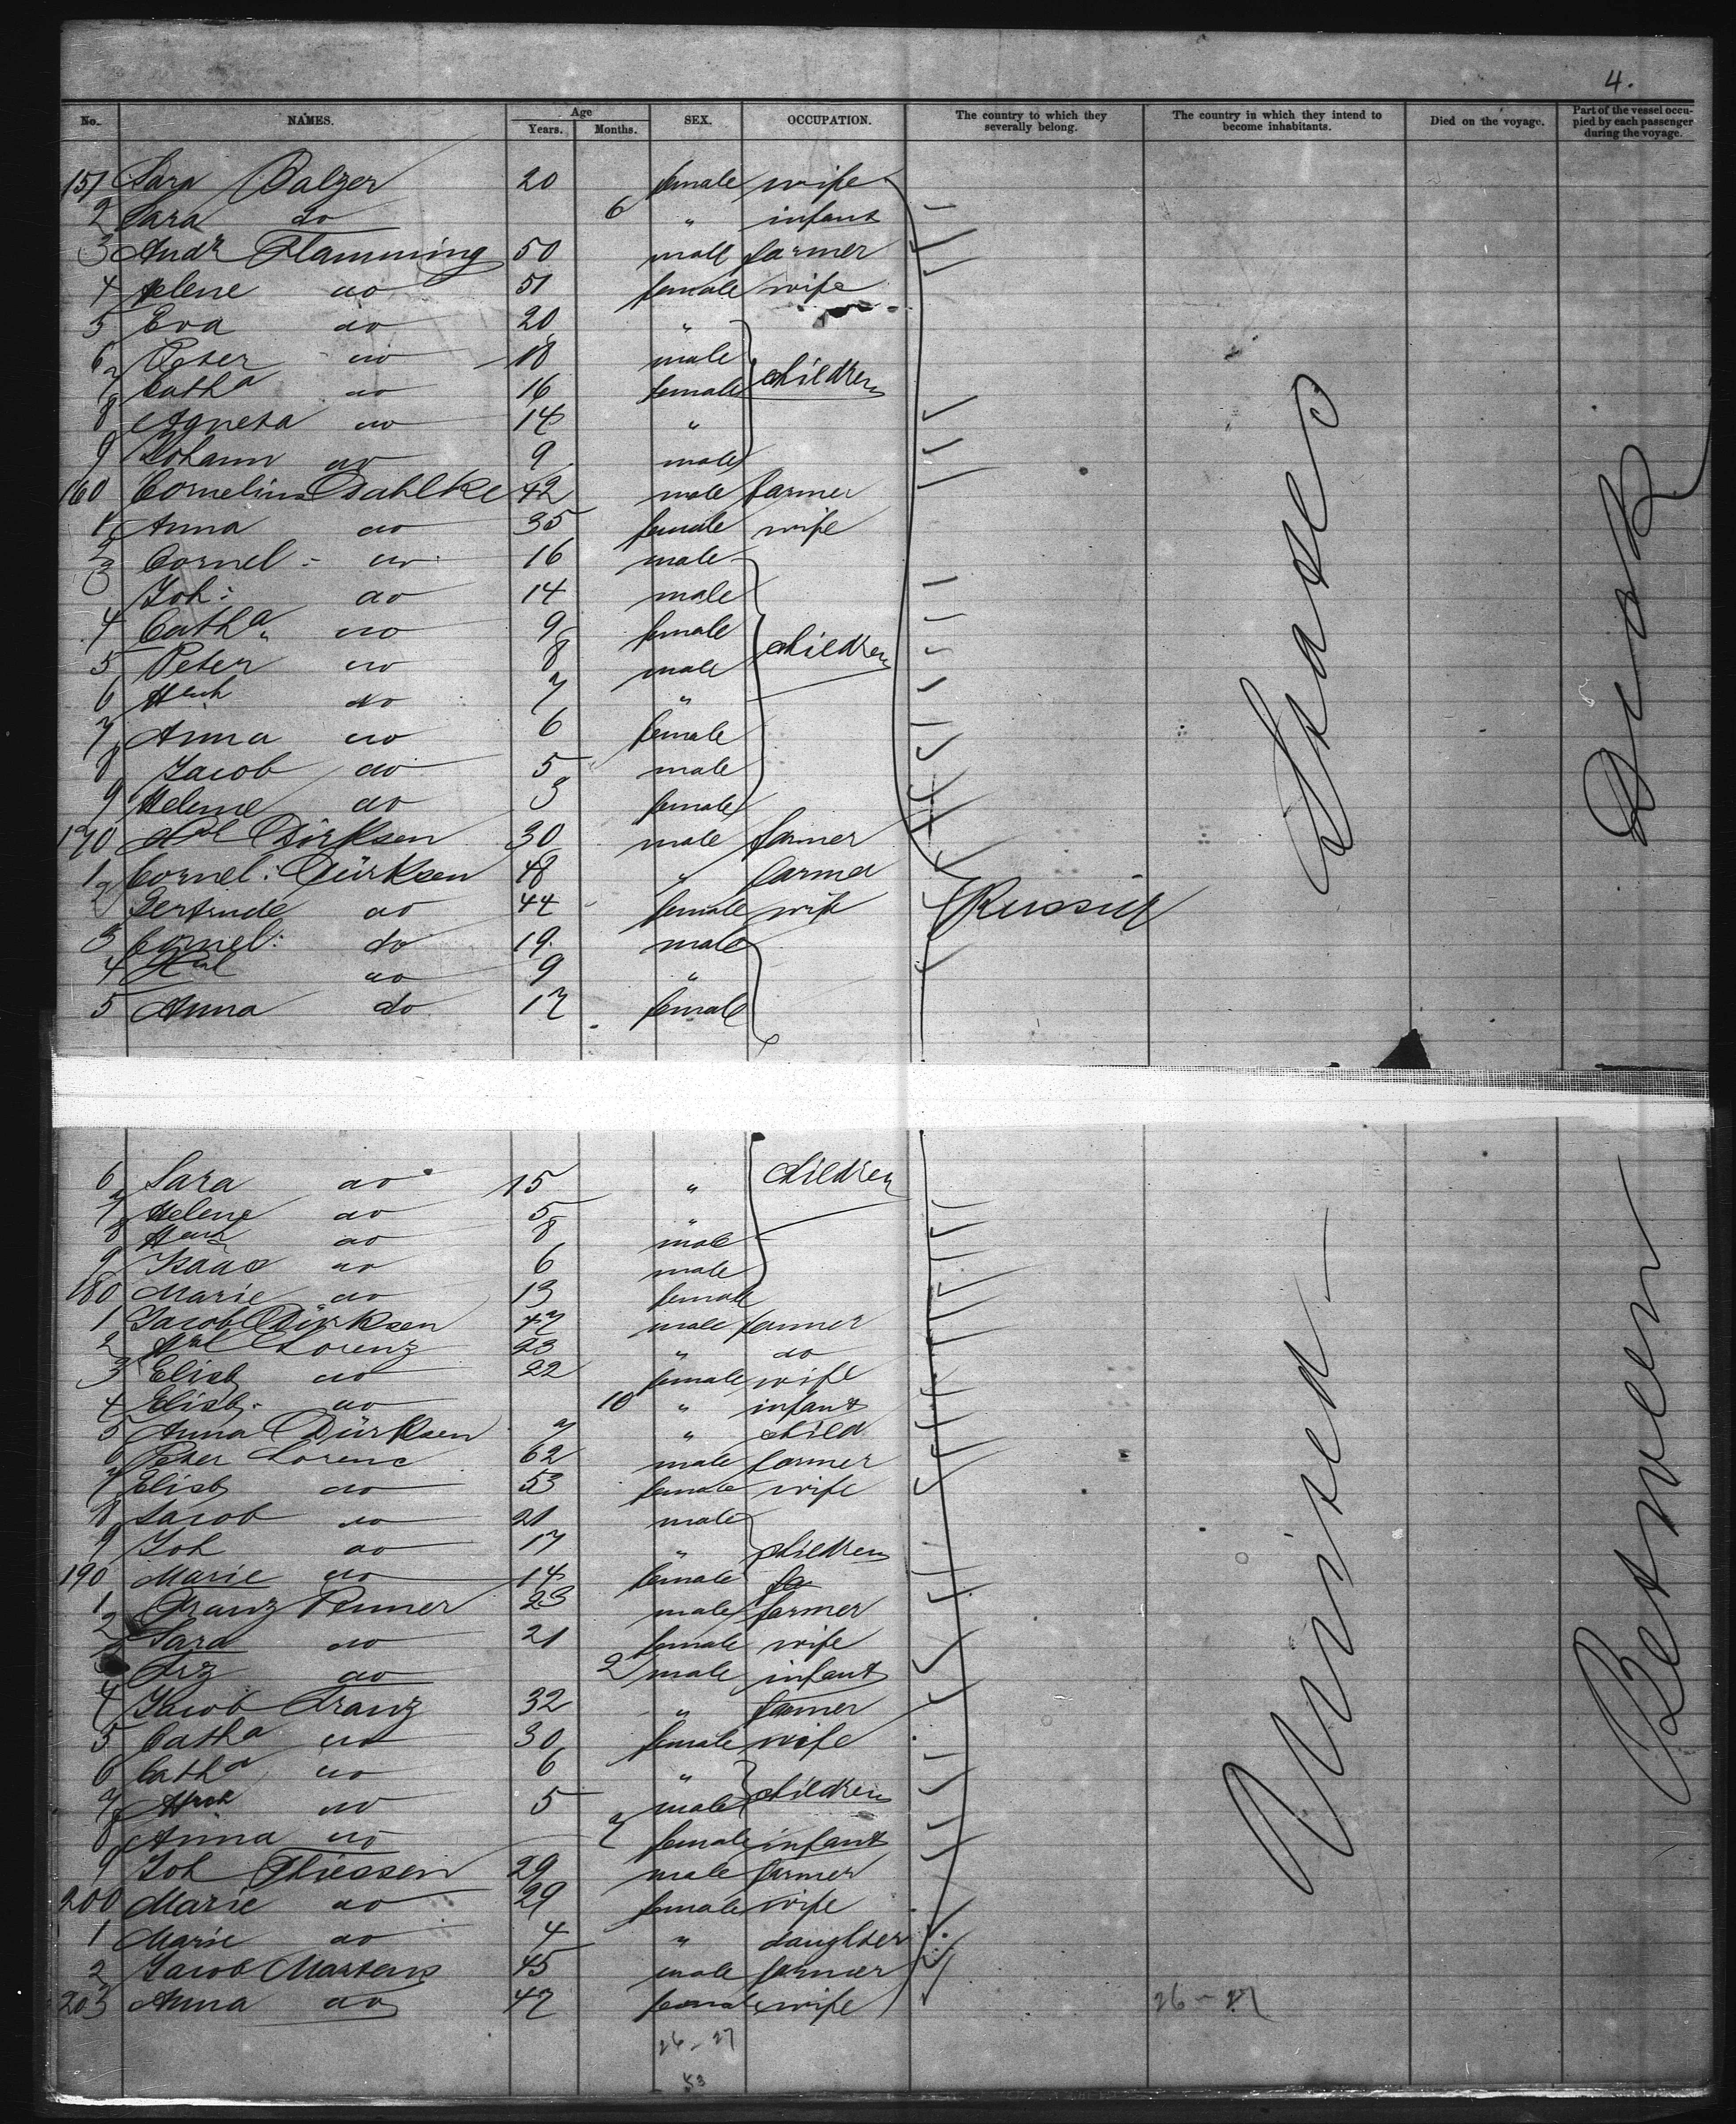 4.
No. NAMES. Age Years. Months. SEX. OCCUPATION. The country to which they severally belong. The country in which they intend to become inhabitants. Died on the voyage. Part of the vessel occupied by each passenger during the voyage.
151 Sara Balzer 20 female wife
2 Sara do 6 " infant
3 Andr Flamming 50 male farmer
4 Helene do 51 female wife
5 Eva do 20 "
6 Peter do 18 male
7 Catha do 16 female children
8 Agneta do 14 "
9 Johann do 9 male
160 Cornelius Dahlke 42 male farmer
1 Anna do 35 female wife
2 Cornel: do 16 male
3 Joh: do 14 male
4 Catha do 9 female
5 Peter do 8 male children
6 Hnch do 7 "
7 Anna do 6 female
8 Jacob do 5 male
9 Helene do 3 female
170 Dirksen 30 male farmer
1 Cornel: Dürksen 48 " farmer
2 Gertrude do 44 female wife Russia
3 Cornel: do 19 male
4 do 9 "
5 Anna do 17 female
6 Sara do 15 " children
7 Helene do 5 "
8 Hnch do 8 male
9 Isaac do 6 male
180 Marie do 13 female
1 Jacob Dürksen 47 male farmer
2 Lorenz 23 " do
3 Elisb do 22 female wife
4 Elisb. do 10 " infant
5 Anna Dürksen 7 " child
6 Peter Lorenc 62 male farmer
7 Elisb do 53 female wife
8 Jacob do 21 male
9 Joh do 17 " children
190 Marie do 14 female
1 Franz Penner 23 male farmer
2 Sara do 21 female wife
3 Frz do 2 male infant
4 Jacob Franz 32 " farmer
5 Catha do 30 female wife
6 Catha do 6 "
7 Hnch do 5 male children
8 Anna do 7 female infant
9 Joh Thiessen 29 male farmer
200 Marie do 29 female wife
1 Marie do 4 " daughter
2 Jacob Martens 45 male farmer
203 Anna do 47 female wife
26-27
26-27
53
United States
Between Deck